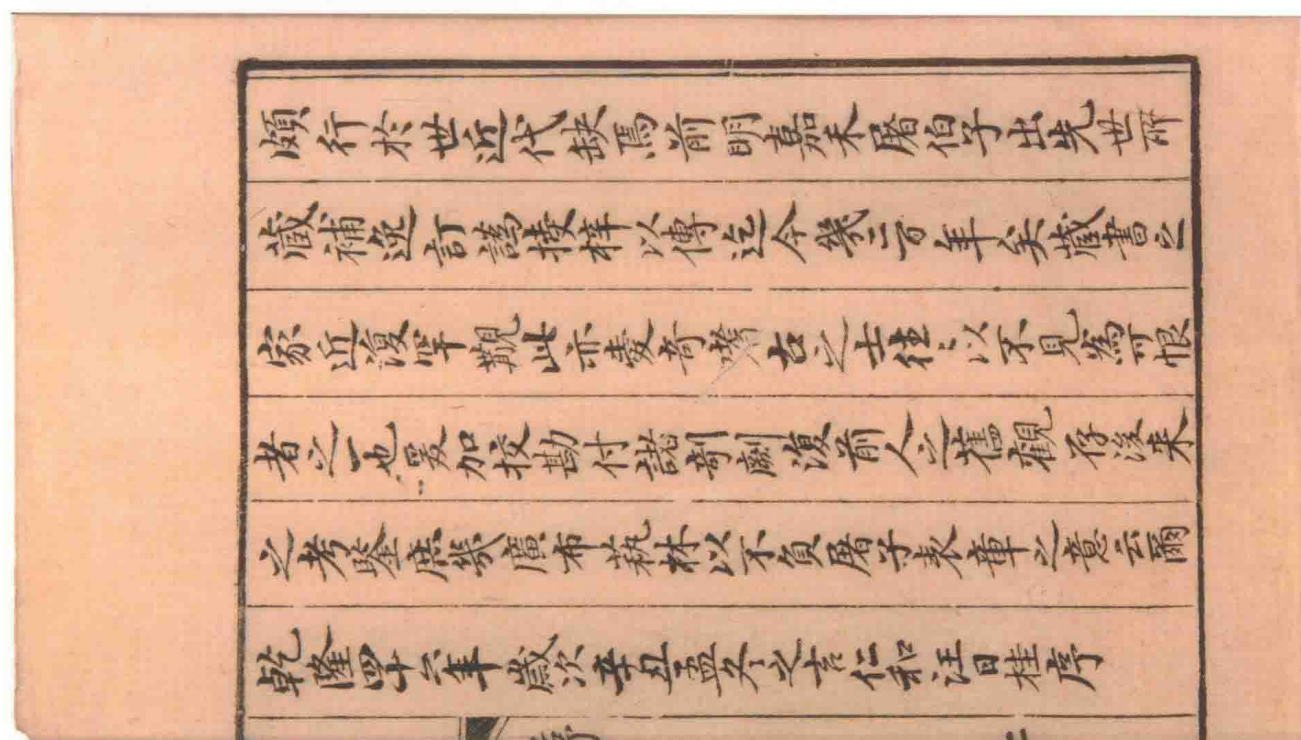 頗行於世近代缺焉前明嘉禾屠伯子出先世所
藏補逸訂譌授梓以傳迄今幾二百年矣藏書之
家近復罕覯此亦愛奇嗜古之士往々以不見為可恨
者之一也爰加挍勘付諸剞劂復前人之舊觀存後来
之考鑒庶幾廣布萟林以不負屠子表章之意云爾
乾隆四十六年歲次辛丑孟冬之吉仁和汪日桂序